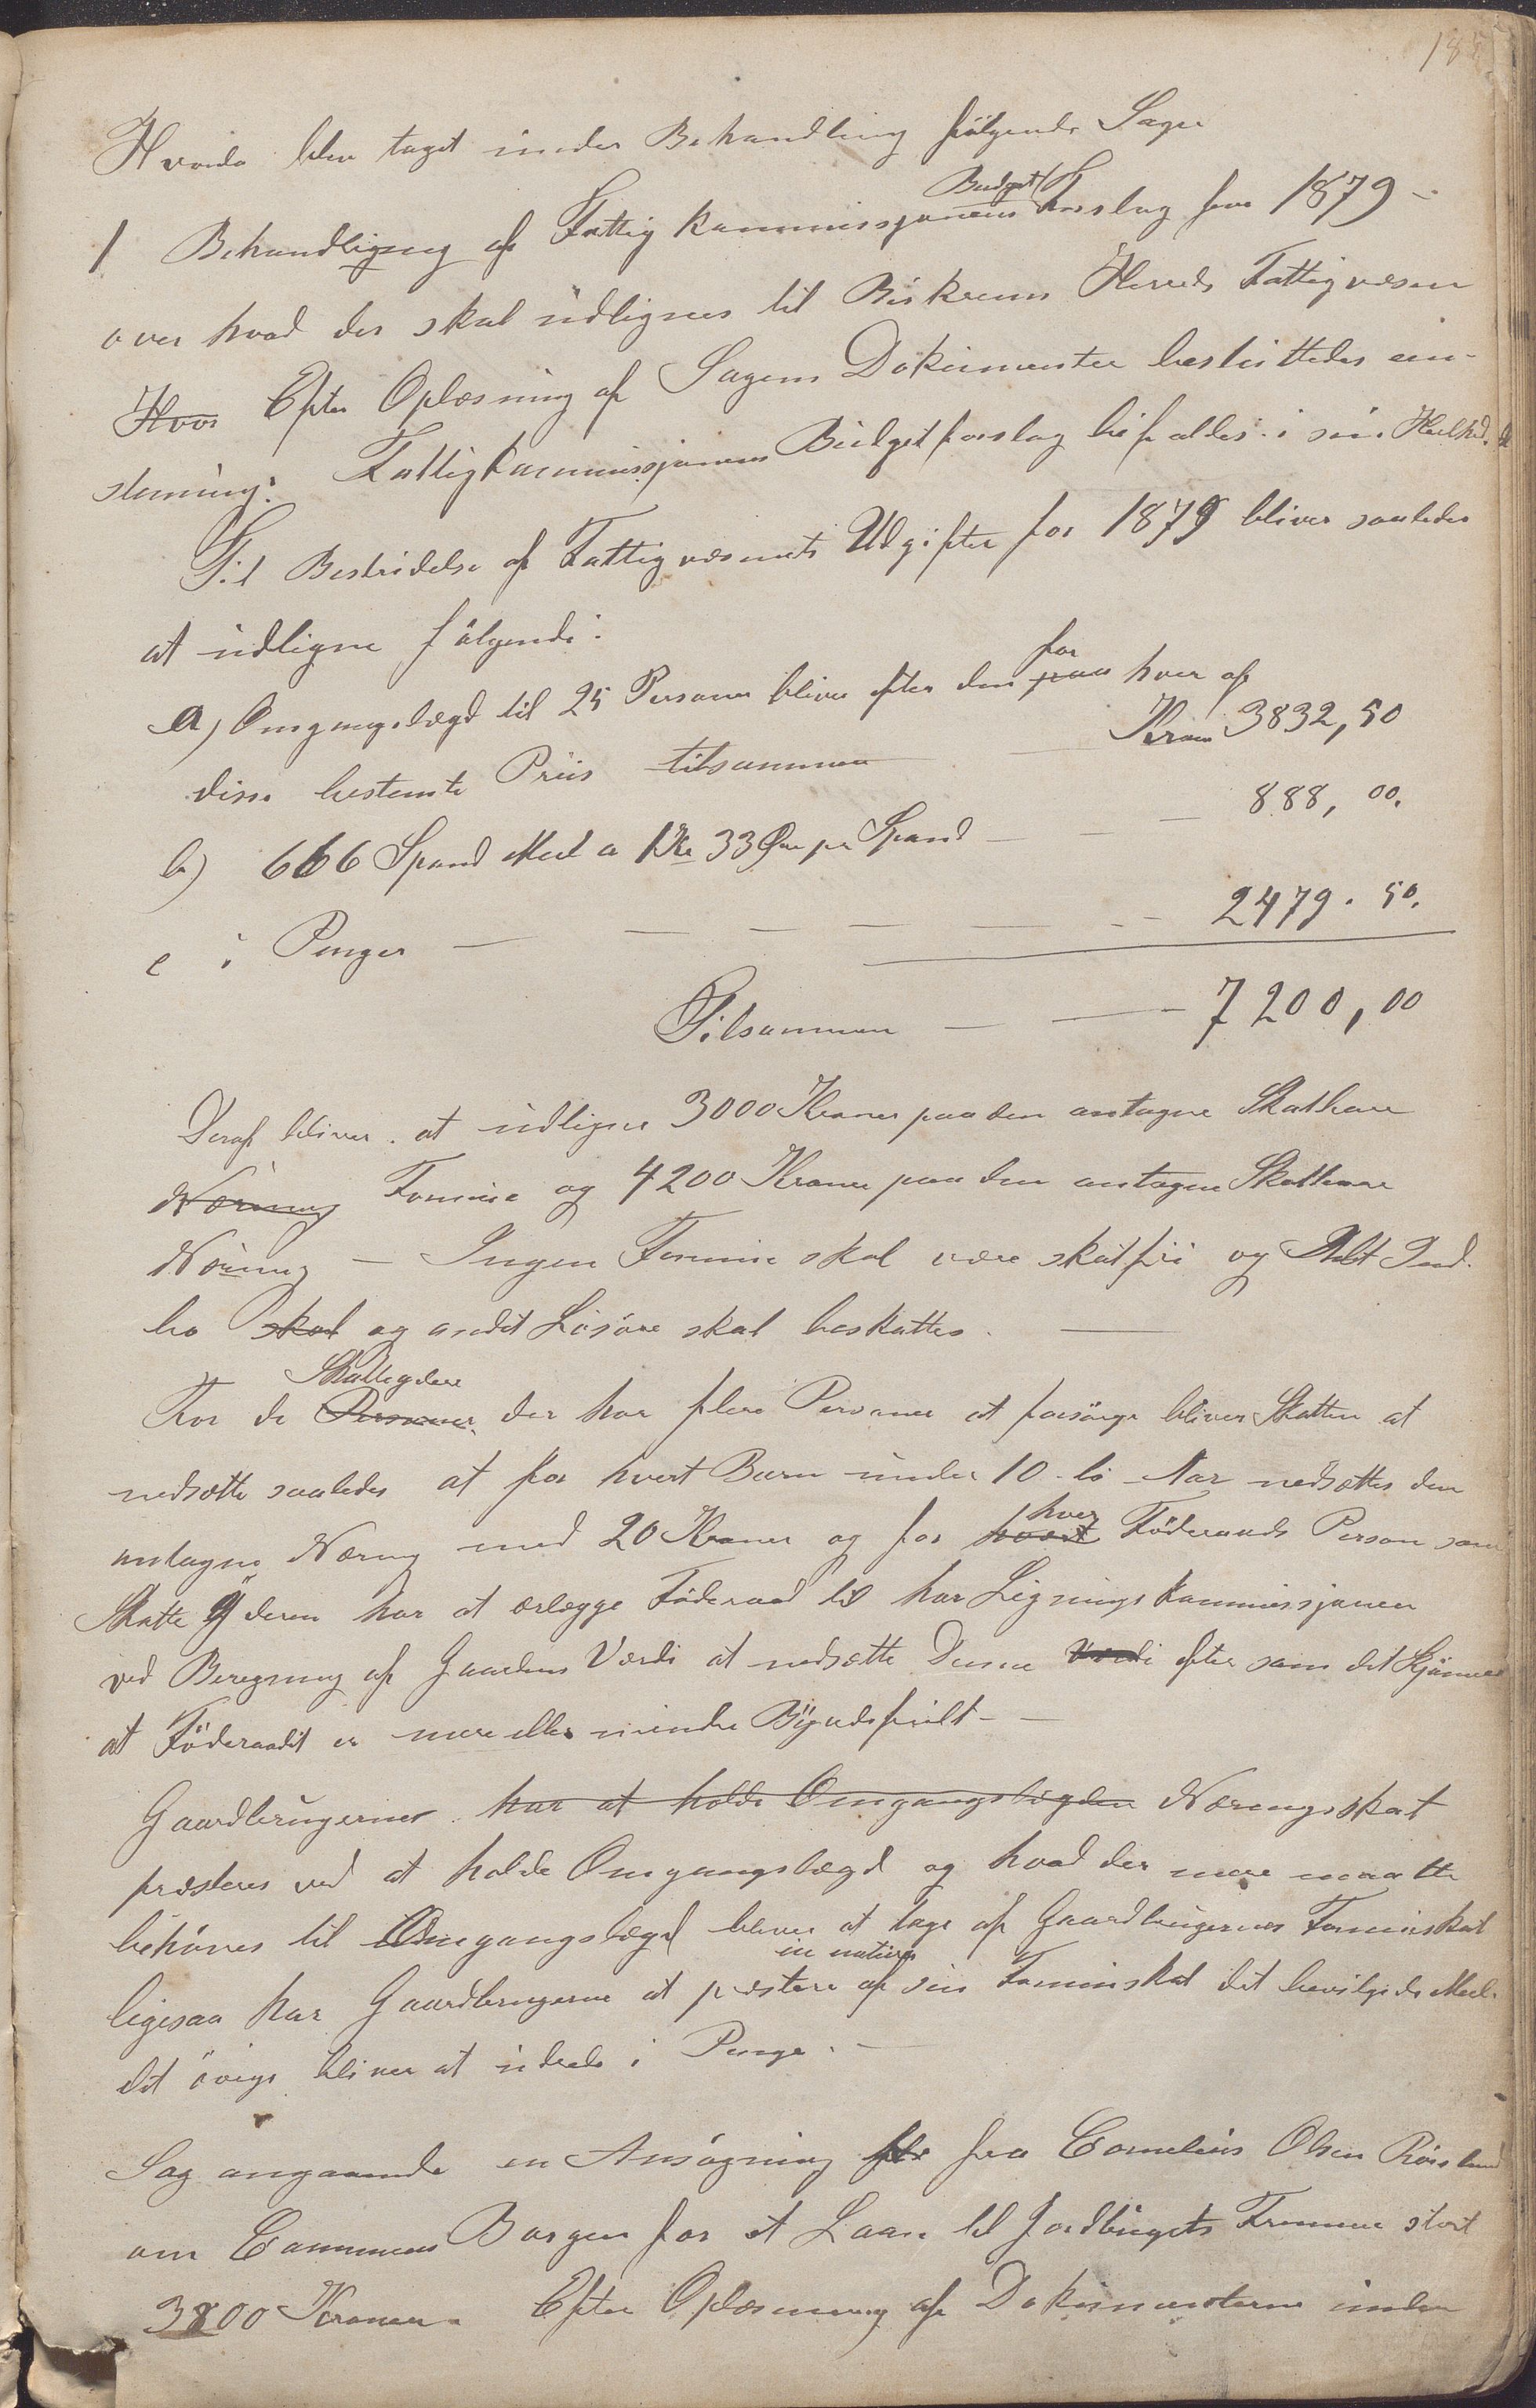 185
Hvorda blev taget under Behandling følgende Sager
1 Behandligng af Fattigkommissjonens Budget Forslag for 1879 -
over hvad der skal udlignes til Birkrems Herreds Fattigvæsen
Hvor Efter Oplæsning af Sagens Dokumenter besluttedes een-
stemmig: Fattigkommissjonens Budgetforslag bifaldes i sin Heelhed.
Til Bestridelse af Fattigvæsenets Udgifter for 1879 bliver saaledes
at udligne følgende:
a) Omgangslægd til 25 Personer bliver efter den paa for hver af
disse bestemte Priis tilsammen Kroner 3832,50
b) 666 Spand Meel a 1 Kr 33 Øre pr Spand — — — 888, 00.
c i Penger — — — — — — 2479. 50.
Tilsammen — — - 7200,00
Deraf bliver at udligne 3000 Kroner paa den antagne Skatbare
Næring Formue og 4200 Kroner paa den antagne Skatbare
Næring — Ingen Formue skal være skatfri og Alt Ind-
bo skal og andet Løsøre skal beskattes. —
For de Personer Skatteydere der har flere Personer at forsørge bliver Skatten at
nedsætte saaledes at for hvert Barn under 10 - ti Aar nedsættes den
antagne Næring med 20 Kroner og for hvert hver Føderaads Person som
Skatte Yderen har at erlægge Føderaad til har Ligningskommissjonen
ved Beregning af Gaardens Værdi at nedsætte Denne Værdi efter som det Skjønnes
at Føderaadet er mere eller mindre Byrdefuldt - —
Gaardbrugernes har at holde Omgangslægden Næringsskat
præsteres ved at holde Omgangslægd og hvad der mere maatte
behøves til Omgangslægd bliver at tage af Gaardbrugernes Formuesskat
ligesaa har Gaardbrugerne at præstere in natura af sin Formuskat det bevilgede Meel.
det øvrige bliver at udrede i Penge. —
Sag angaaende en Ansøgning fra Cornelius Olsen Røisland
om Communens Borgen for et Laan til Jordbrugets Fremme stort
3800 Kroner. Efter Oplæsning af Dokumenterne inden